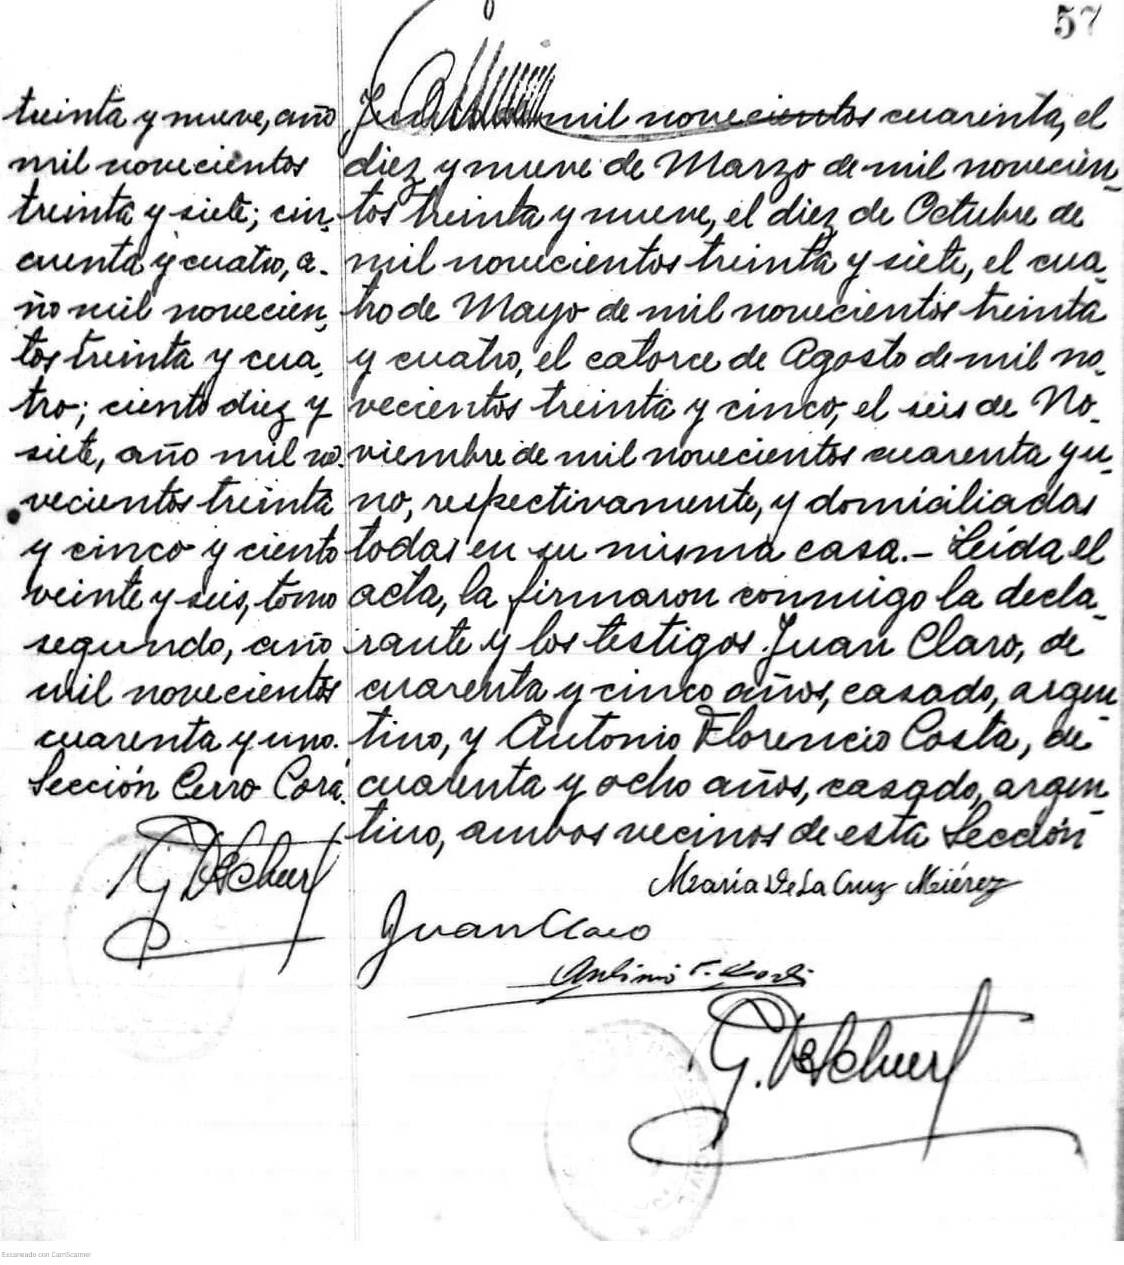 57
treinta y nueve, año
mil novecientos
treinta y siete; cin-
cuenta y cuatro, a-
ño mil novecien-
tos treinta y cua-
tro; ciento diez y
siete, año mil no-
vecientos treinta
y cinco y ciento
veinte y seis, tomo
segundo, año
mil novecientos
cuarenta y uno.
Sección Cerro Corá.
mil novecientos cuarenta, el
diez y nueve de Marzo de mil novecien-
tos treinta y nueve, el diez de Octubre de
mil novecientos treinta y siete, el cua-
tro de Mayo de mil novecientos treinta
y cuatro, el catorce de Agosto de mil no-
vecientos treinta y cinco, el seis de No-
viembre de mil novecientos cuarenta y u-
no, respectivamente, y domiciliadas
todas en su misma casa.- Leída el
acta, la firmaron conmigo la decla-
rante y los testigos Juan Claro, de
cuarenta y cinco años, casado, argen-
tino, y Antonio Florencio Costa, de
cuarenta y ocho años, casado, argen-
tino, ambos vecinos de esta Sección
María De La Cruz
Juan Claro
Antonio F. Costa
Escaneado con CamScanner